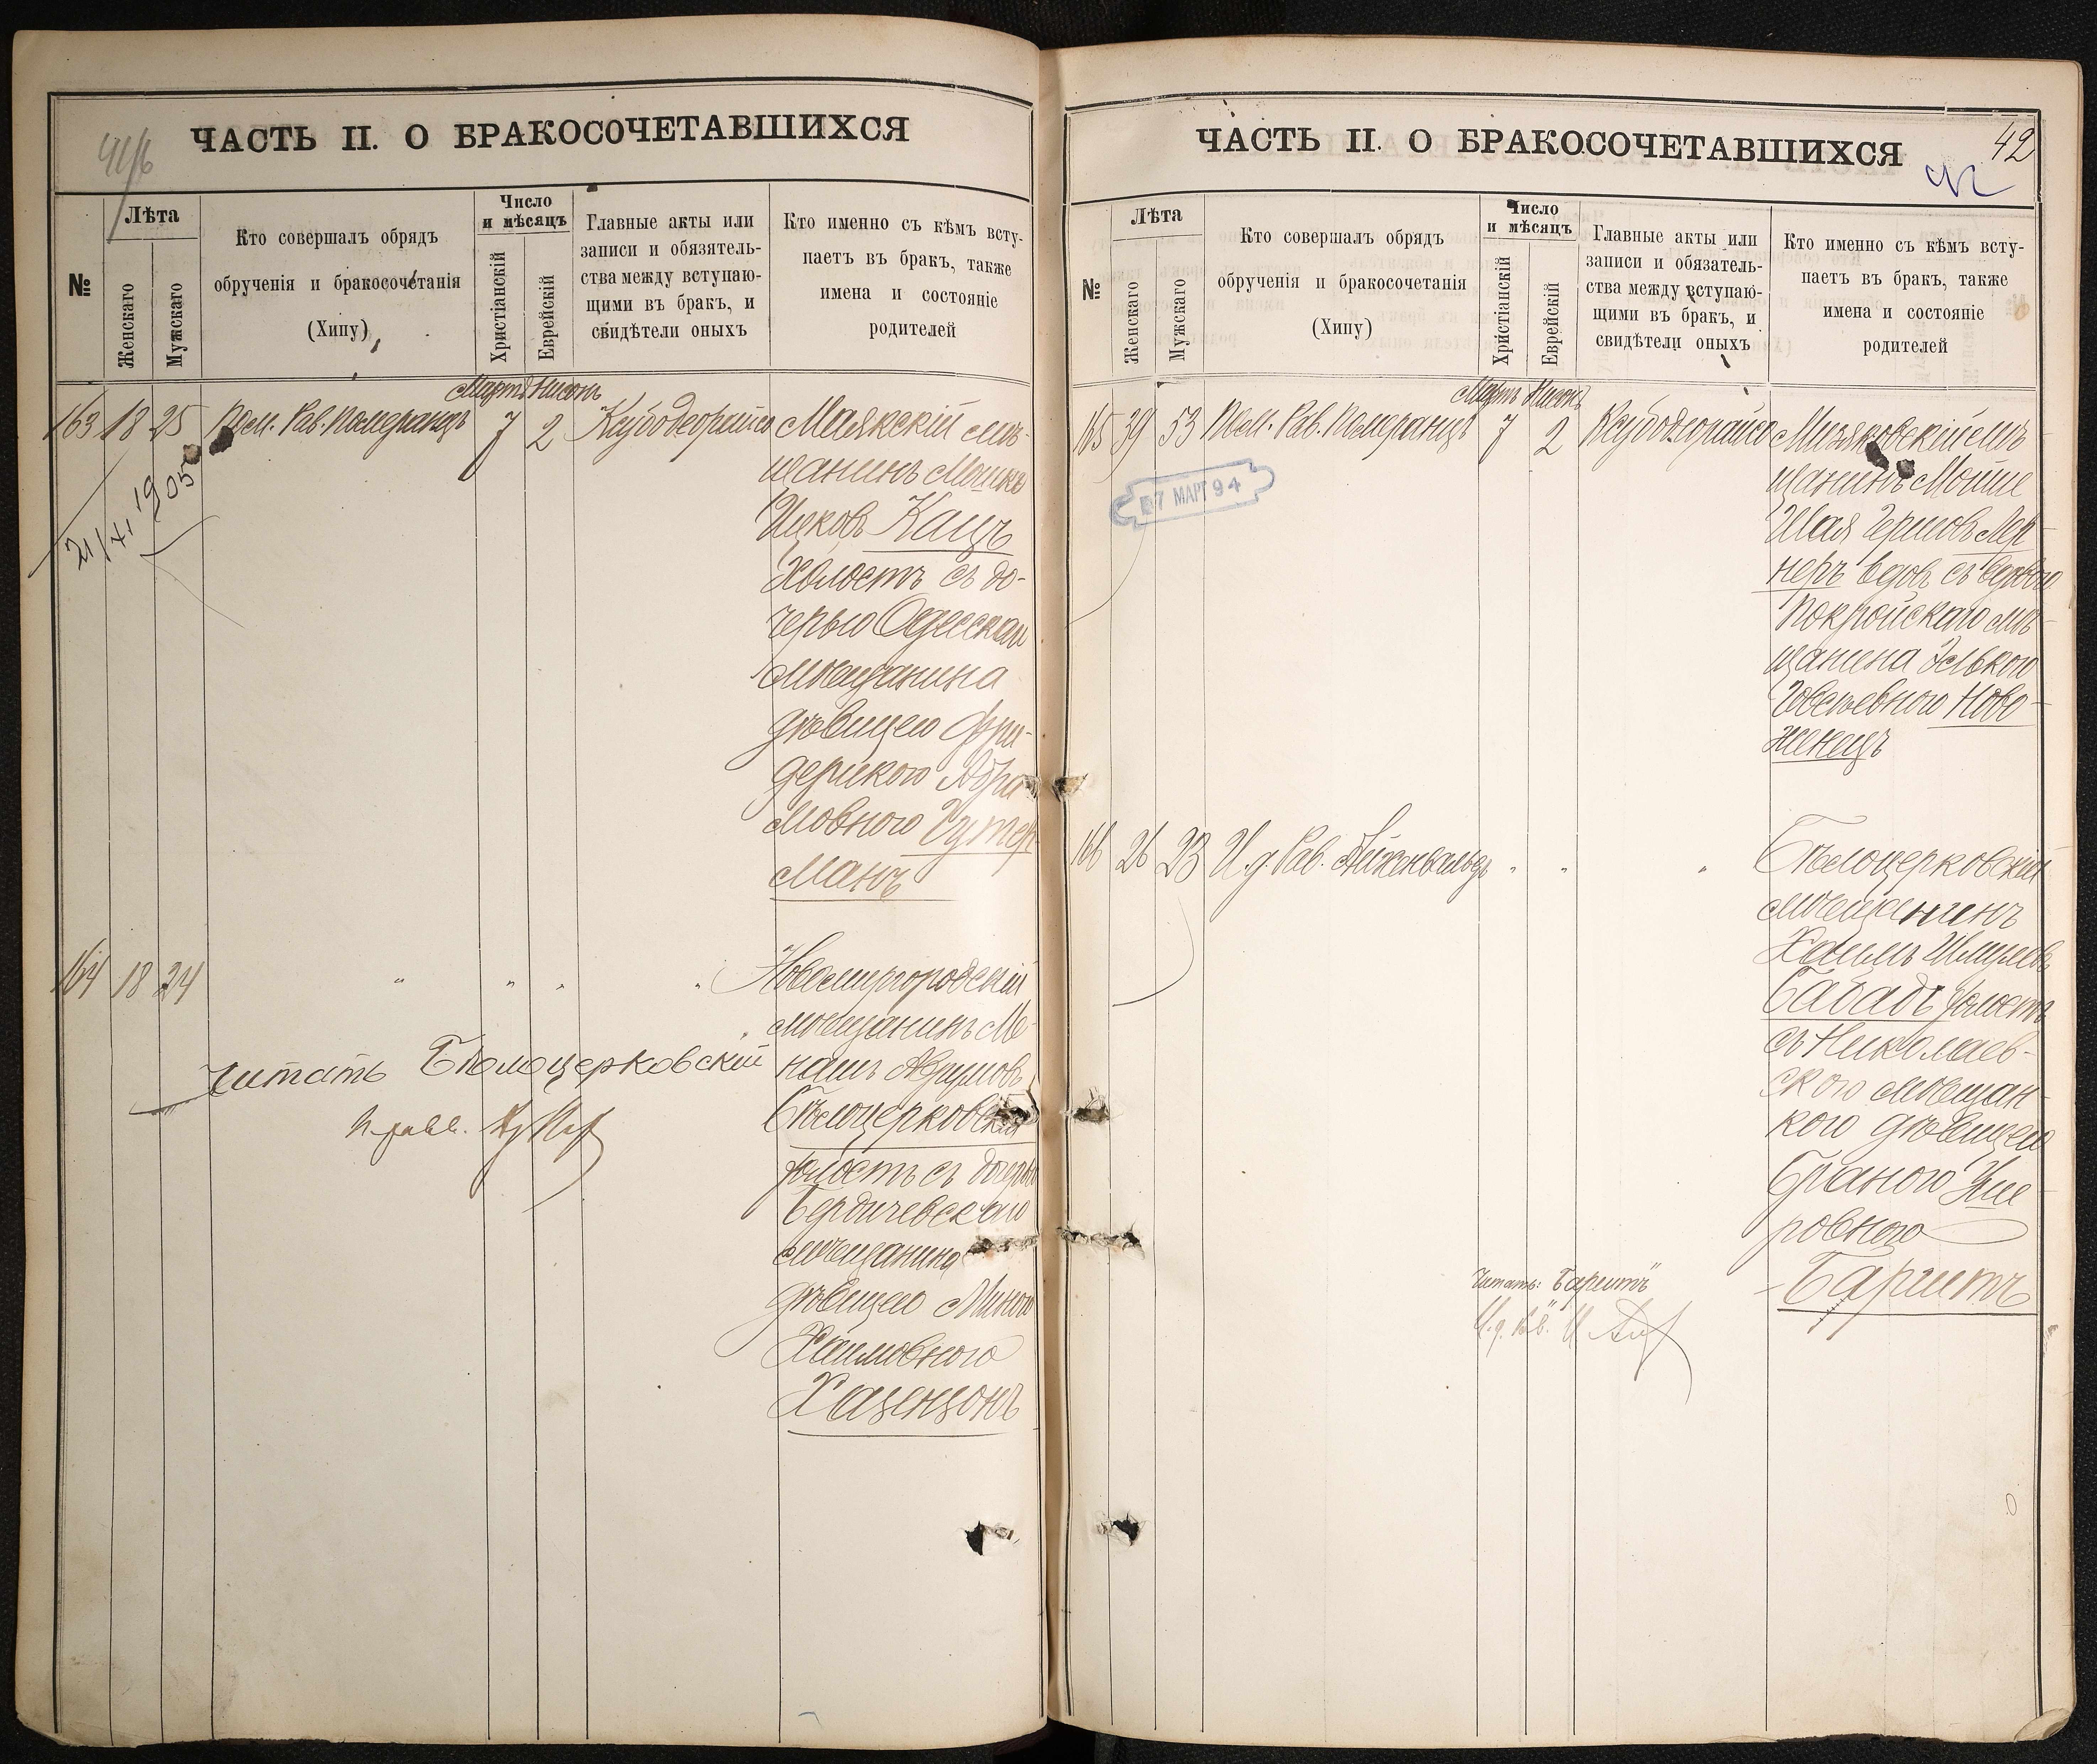 41/б
ЧАСТЬ II. О БРАКОСОЧЕТАВШИХСЯ
№
Лѣта
Женскаго
Мужскаго
Кто совершалъ обрядъ
обрученія и бракосочетанія
(Хипу)
Число
и мѣсяцъ
Христіанскій
Еврейскій
Главные акты или
записи и обязятель-
ства между вступаю-
щими въ бракъ, и
свидѣтели оныхъ
Кто именно съ кѣмъ всту-
паетъ въ бракъ, также
имена и состояніе
родителей
Мартъ Нисонъ
163 18 25 Пом. Рав. Померанцъ 7 2 Ксубодеорайсо Маякскій мѣ-
щанинъ Мошко
Ицковъ Кацъ
Холостъ съ до-
черью Одесскаго
мѣщанина
дѣвицею Фри-
дерикою Абра-
мовною Гутер-
манъ
21/XI 1905
164 18 24 " " " " Новомиргородскій
мѣщанинъ Ме-
нашъ Аврумовъ
Бѣлоцерковскій
холостъ съ дочерью
Бердичевскаго
мѣщанина
дѣвицею Миною
Хаимовною
Хаценцонъ
читать Бѣлоцерковскій
ЧАСТЬ II. О БРАКОСОЧЕТАВШИХСЯ
42
42
№
Лѣта
Женскаго
Мужскаго
Кто совершалъ обрядъ
обрученія и бракосочетанія
(Хипу)
Число
и мѣсяцъ
Христіанскій
Еврейскій
Главные акты или
записи и обязатель-
ства между вступаю-
щими въ бракъ, и
свидѣтели оныхъ
Кто именно съ кѣмъ всту-
паетъ въ бракъ, также
имена и состояніе
родителей
Мартъ Нисонъ
165 39 53 Пом. Рав. Померанцъ 7 2 Ксубодеорайсо Мизяковскій мѣ
щанинъ Мойше
Шая Гершовъ Лер-
неръ вдов. съ вдовою
Покройскаго мѣ-
щанина Элькою
Іовелевною Ново-
женецъ
27 МАРТ 94
166 26 23 И. д. Рав. Айхенвальдъ " " " Бѣлоцерковскій
мѣщанинъ
Хаимъ Шмулевъ
Бабадъ холостъ
съ Николаев-
скою мѣщан-
кою дѣвицею
Браною Уше
ровною
Баритъ
Читать: "Баритъ"
И. д. Рав.